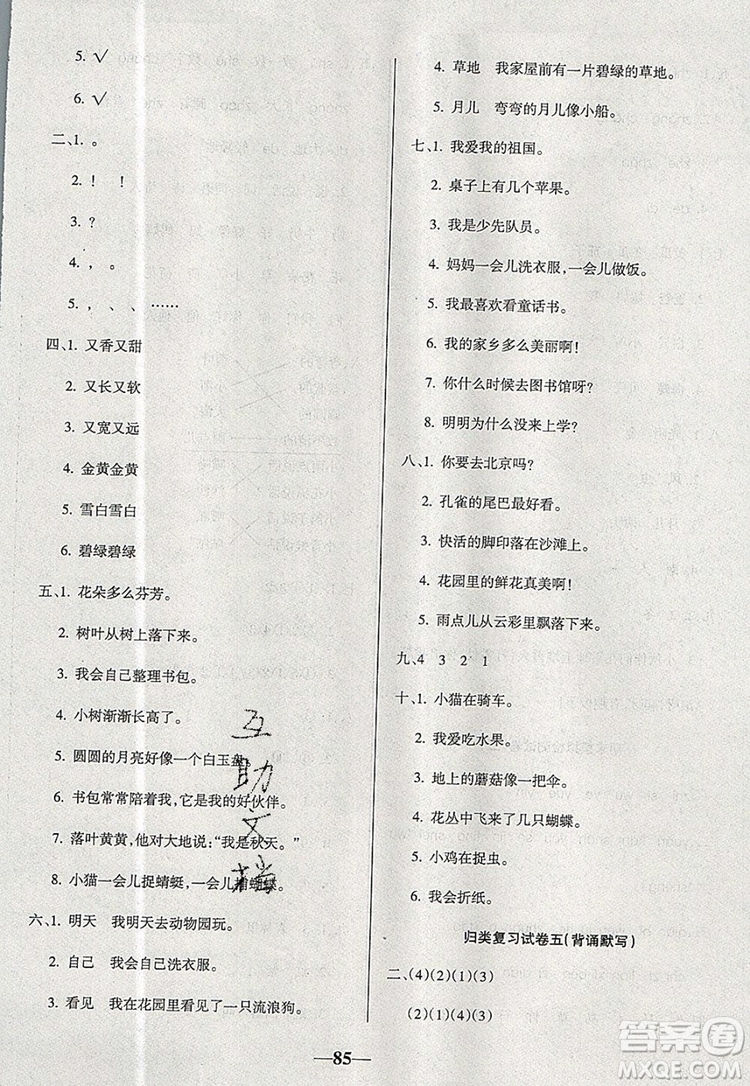 5. √
6. √
二、1. 。
2. ！ ！
3. ？
4. ， 。
5. 、 、 ……
四、1. 又香又甜
2. 又长又软
3. 又宽又远
4. 金黄金黄
5. 雪白雪白
6. 碧绿碧绿
五、1. 花朵多么芬芳。
2. 树叶从树上落下来。
3. 我会自己整理书包。
4. 小树渐渐长高了。
5. 圆圆的月亮好像一个白玉盘。
6. 书包常常陪着我，它是我的好伙伴。
7. 落叶黄黄，他对大地说：“我是秋天。”
8. 小猫一会儿捉蜻蜓，一会儿捕蝴蝶。
六、1. 明天 我明天去动物园玩。
2. 自己 我会自己洗衣服。
3. 看见 我在花园里看见了一只流浪狗。
4. 草地 我家屋前有一片碧绿的草地。
5. 月儿 弯弯的月儿像小船。
七、1. 我爱我的祖国。
2. 桌子上有几个苹果。
3. 我是少先队员。
4. 妈妈一会儿洗衣服，一会儿做饭。
5. 我最喜欢看童话书。
6. 我的家乡多么美丽啊！
7. 你什么时候去图书馆呀？
8. 明明为什么没来上学？
八、1. 你要去北京吗？
2. 孔雀的尾巴最好看。
3. 快活的脚印落在沙滩上。
4. 花园里的鲜花真美啊！
5. 雨点儿从云彩里飘落下来。
九、4 3 2 1
十、1. 小猫在骑车。
2. 我爱吃水果。
3. 地上的蘑菇像一把伞。
4. 花丛中飞来了几只蝴蝶。
5. 小鸡在捉虫。
6. 我会折纸。
归类复习试卷五（背诵默写）
二、(4)(2)(1)(3)
(2)(1)(4)(3)
互助文档
85
答案圈
MXQE.COM